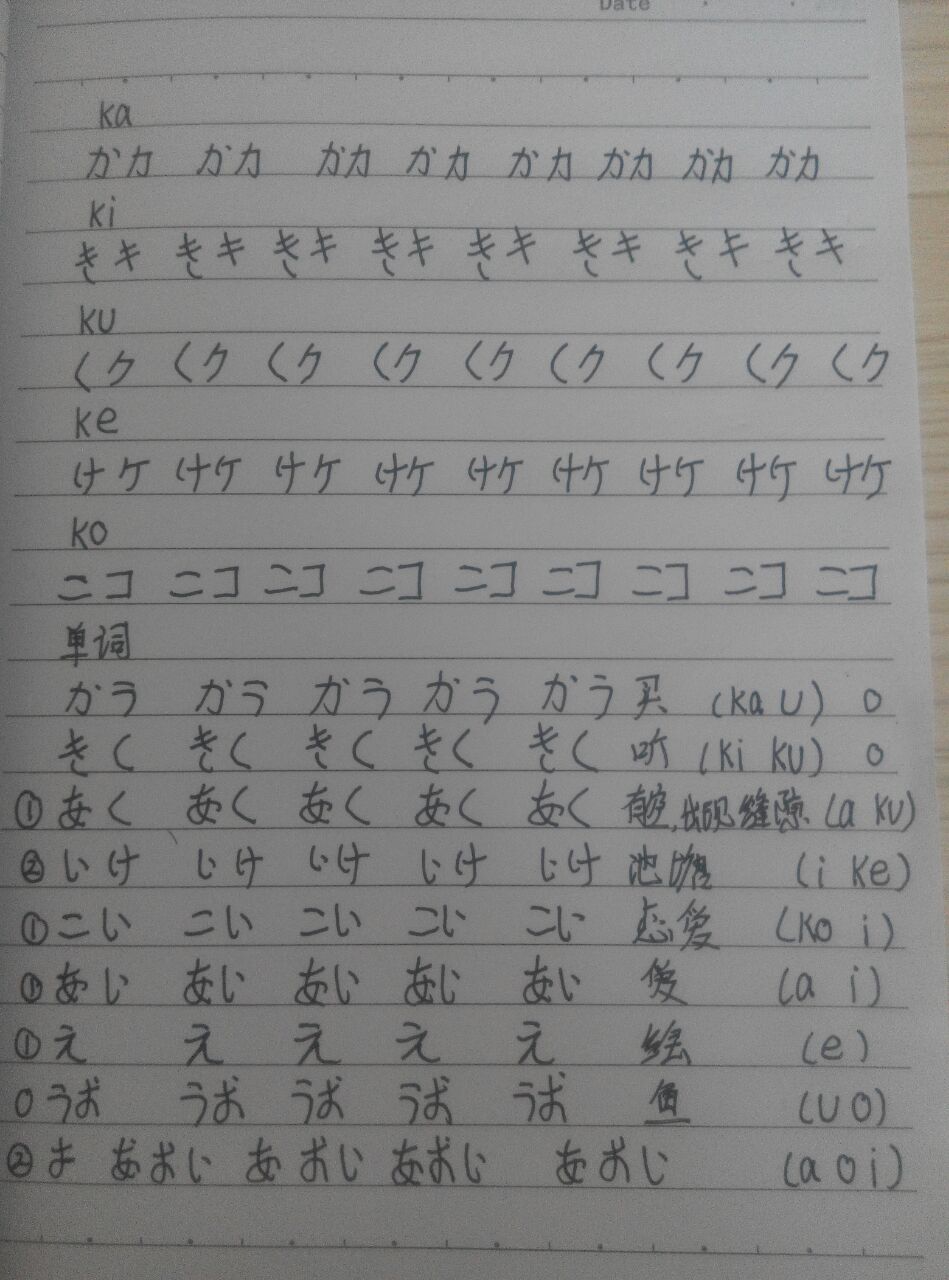 Date
ka
かカ かカ かカ かカ かカ かカ かカ かカ
ki
きキ きキ きキ きキ きキ きキ きキ きキ
ku
くク くク くク くク くク くク くク くク くク
ke
けケ けケ けケ けケ けケ けケ けケ けケ けケ
ko
こコ こコ こコ こコ こコ こコ こコ こコ こコ
单词
かう かう かう かう かう 买 (ka u) 0
きく きく きく きく きく 听 (ki ku) 0
① あく あく あく あく あく 有空, 缝隙 (a ku)
② いけ いけ いけ いけ いけ 池塘 (i ke)
① こい こい こい こい こい 恋爱 (ko i)
① あい あい あい あい あい 爱 (a i)
① え え え え え 绘 (e)
0 うお うお うお うお うお 鱼 (u o)
② お あおい あおい あおい あおい (a o i)